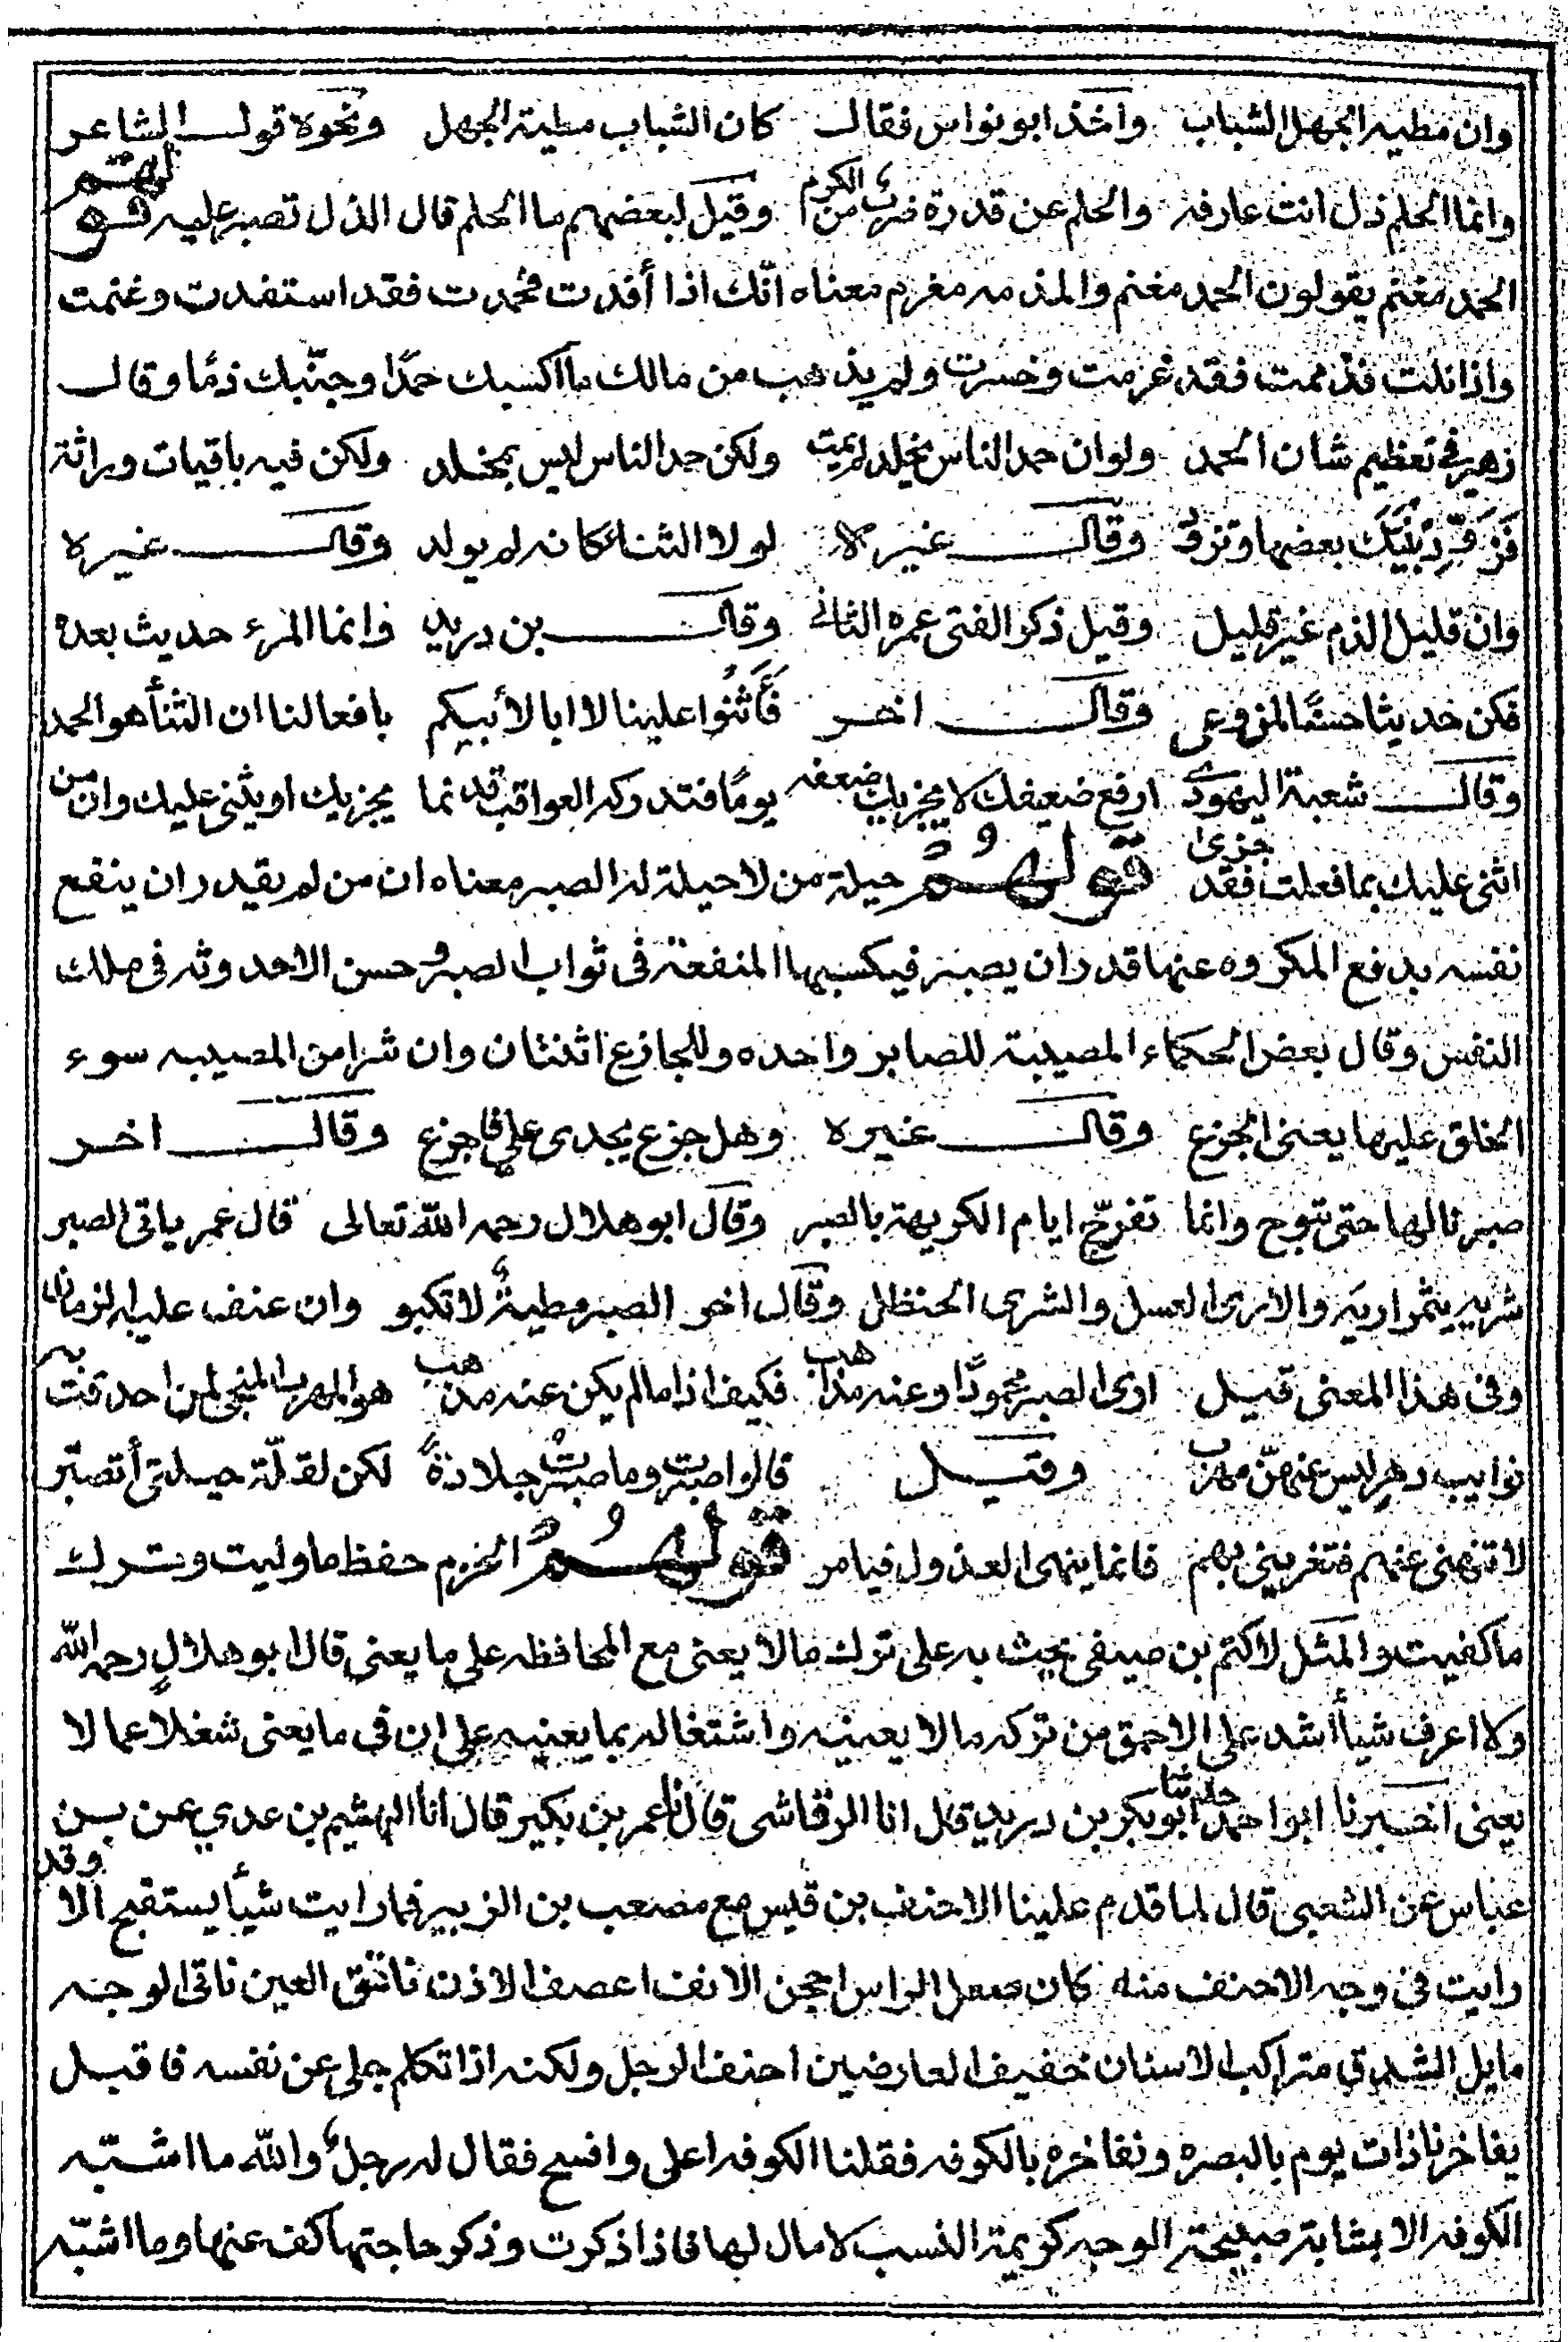 وان مطيه الجهل الشباب واخذ ابو نواس فقال كان الشباب مطية الجهل ونحوه قول الشاعر
وانما الحلم ذل انت عارفه والحلم عن قدرة ضرب من الكرم وقيل لبعضهم ما الحلم قال الذل تصبر عليه قولهم
الحمد مغنم يقولون الحمد مغنم والمذمه مغرم معناه انّك اذا أفدت فحمدت فقد استفدت وغنمت
واذا نلت فذممت فقد غرمت وخسرت ولم يذهب من مالك ما اكسبك حمدًا وجنّبك ذمًا وقال
زهير في تعظيم شان الحمد ولو ان حمد الناس يخلد لم يمت ولكن حمد الناس ليس بمخلد ولكن فيه باقيات وراثة
بنيك بعضها وتزود وقال غيره لولا الثناء كانه لم يولد وقال غيره
وان قليل الذم غير قليل وقيل ذكر الفتى عمره الثانى وقال بن دريد وانما المرء حديث بعده
فكن حديثا حسنًا لمن وعى وقال اخر فَأَثنُوا علينا لا ابا لأبيكم بافعالنا ان الثنأ هو الحمد
وقال شعبة اليهودى ارفع ضعيفك لا يجزيك ضعفه يومًا فتدركه العواقب قد نما يجزيك او يثنى عليك وان من
اثنى عليك بما فعلت فقد جزى قولهُم حيلة من لا حيلة له الصبر معناه ان من لم يقدر ان ينفع
نفسه بدفع المكروه عنها قدر ان يصبر فيكسبها المنفعة فى ثواب الصبر وحسن الاحدوثه فى ملك
النفس وقال بعض الحكماء المصيبة للصابر واحده وللجازع اثنتان وان شرا من المصيبه سوء
الخلق عليها يعنى الجزع وقال غيره وهل جزع يجدى على فاجزع وقال اخر
صبرنا لها حتى تبوح وانما تفرّج ايام الكريهة بالصبر وقال ابو هلال رحمه الله تعالى قال عمر ياتى الصبر
والارى العسل والشرى الحنظل وقال اخر الصبر مطيةٌ لا تكبو وان عنف عليه الزمان
وفى هذا المعنى قيل ارى الصبر محمودًا وعنه مذاهب فكيف اذا ما لم يكن عنه مذهب هو المهرب المنجى لمن احدقت به
نوايب دهرٍ ليس عنهنّ مهرب وقيل قالوا صبرت وما صبرت جلادةً لكن لقلّة حيلتى أتصبّر
لا تنهنى عنهم فتغرينى بهم فانما ينهى العذول فيامر قولهُم الحزم حفظ ما وليت وترك
ما كفيت والمثل لاكثم بن صيفى يحث به على ترك ما لا يعنى مع المحافظه على ما يعنى قال ابو هلالٍ رحمه الله
ولا اعرف شيأ اشد على الاحمق من تركه ما لا يعنيه واشتغاله بما يعنيه على ان فى ما يعنى شغلا عما لا
يعنى اخبرنا ابو احمد حدثنا ابو بكر بن دريد قال انا الرقاشى قال نا عمر بن بكير قال انا الهيثم بن عدي عن بن
عباس عن الشعبى قال لما قدم علينا الاحنف بن قيس مع مصعب بن الزبير فما رايت شيأ يستقبح الا وقد
رايت فى وجه الاحنف منه كان صعل الراس احجن الانف اعصف الاذن ناتئ الوجنه
مايل الشدق متراكب الاسنان خفيف العارضين احنف الرجل ولكنه اذا تكلم جلى عن نفسه فاقبل
يفاخرنا ذات يوم بالبصره ونفاخره بالكوفه فقلنا الكوفه اعلى وافسح فقال له رجلٌ والله ما اشبّه
الكوفه الا بشابة صبيحة الوجه كريمة النسب لا مال لها فاذا ذكرت وذكر حاجتها كف عنها وما اشبّه